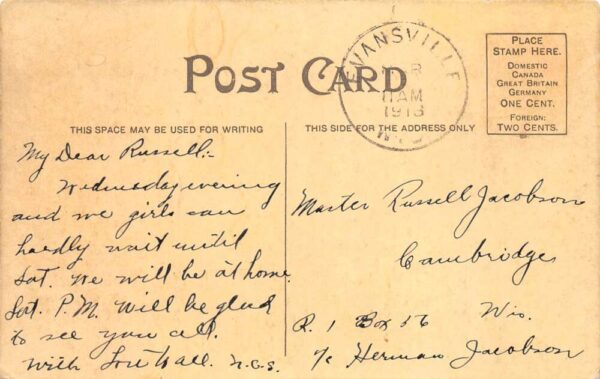 POST CARD
EVANSVILLE
11 AM
1913
WIS.
PLACE
STAMP HERE.
DOMESTIC
CANADA
GREAT BRITAIN
GERMANY
ONE CENT.
FOREIGN:
TWO CENTS.
THIS SPACE MAY BE USED FOR WRITING
My Dear Russell:-
Wednesday evening
and we girls can
hardly wait until
Sat. We will be at home
Sat. P.M. Will be glad
to see you all.
With love to all. N.C.S.
THIS SIDE FOR THE ADDRESS ONLY
Master Russell Jacobson
Cambridge
Wis.
R. 1 Box 56
℅ Herman Jacobson